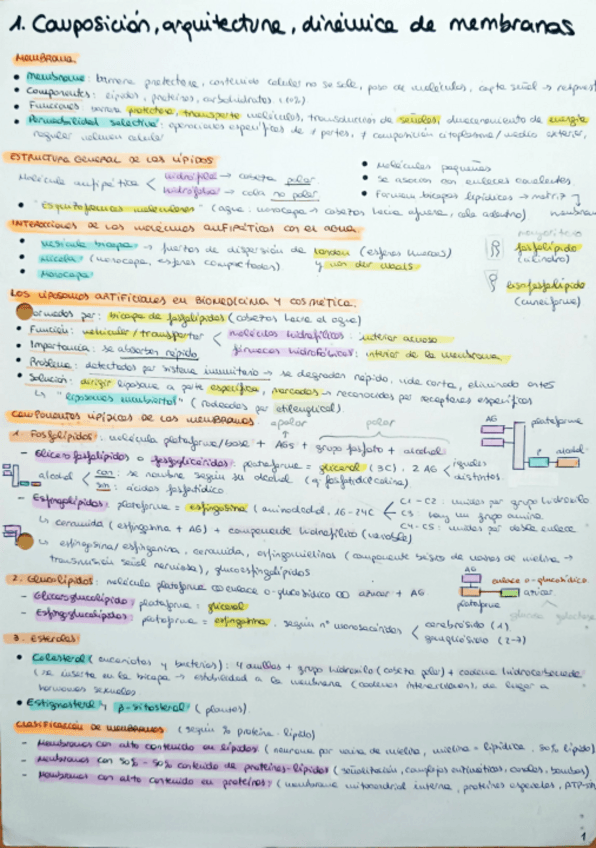 1. Composición, arquitectura, dinámica de membranas
MEMBRANA
• Membrana: barrera protectora, contenido celular no se sale, paso de moléculas, capta señal → respuest
• Componentes: lípidos, proteínas, carbohidratos (10%)
• Funciones: barrera protectora, transporte moléculas, transducción de señales, almacenamiento de energía
• Permeabilidad selectiva: operaciones específicas de ≠ partes, ≠ composición citoplasma/medio exterior,
regular volumen celular
ESTRUCTURA GENERAL DE LOS LÍPIDOS
Molécula anfipática < hidrófila → cabeza polar
hidrófoba → cola no polar
• Moléculas pequeñas
• Se asocian con enlaces covalentes
• Forman bicapas lipídicas → matriz
membrana
• "Esquizofrénicas moleculares" (agua: monocapa → cabezas hacia afuera, cola adentro)
INTERACCIONES DE LAS MOLÉCULAS ANFIPÁTICAS CON EL AGUA
• Vesícula bicapa → fuerzas de dispersión de London (esferas huecas)
• Micela (monocapa, esferas compactadas) y van der Waals
• Monocapa
mayoritario
fosfolípido
(cilindro)
lisofosfolípido
(cuneiforme)
LOS LIPOSOMAS ARTIFICIALES EN BIOMEDICINA Y COSMÉTICA
Formados por: bicapa de fosfolípidos (cabezas hacia el agua)
• Función: vehicular/transportar < moléculas hidrofílicas: interior acuoso
fármacos hidrofóbicos: interior de la membrana
• Importancia: se absorben rápido
• Problema: detectados por sistema inmunitario → se degradan rápido, vida corta, eliminado antes
• Solución: dirigir liposoma a parte específica, marcados → reconocidos por receptores específicos
↳ "liposomas encubiertos" (rodeados por etilenglicol)
COMPONENTES LIPÍDICOS DE LAS MEMBRANAS
apolar polar
1. Fosfolípidos: molécula plataforma/base + AGs + grupo fosfato + alcohol
- Glicerofosfolípidos o fosfoglicéridos: plataforma = glicerol (3C). 2 AG < iguales
distintos
alcohol < con: se nombre según su alcohol (ej fosfatidilcolina)
sin: ácidos fosfatídico
AG plataforma
P alcohol
- Esfingolípidos: plataforma = esfingosina (aminoalcohol, 16-24C < C1-C2: unidos por grupo hidroxilo
C3: hay un grupo amino
C4-C5: unidos por doble enlace
↳ ceramida (esfingosina + AG) + componente hidrofílico (variable)
↳ esfingosina/esfinganina, ceramida, esfingomielinas (componente básico de vainas de mielina →
transmisión señal nerviosa), glucoesfingolípidos
2. Glucolípidos: molécula plataforma con enlace o-glucosídico con azúcar + AG
- Gliceroglucolípido: plataforma = glicerol
- Esfingoglucolípidos: plataforma = esfingosina. según nº monosacáridos < cerebrósido (1)
gangliósido (2-7)
AG enlace o-glucosídico
azúcar
plataforma
glucosa galactosa
3. Esteroles
• Colesterol (eucariotas y bacterias): 4 anillos + grupo hidroxilo (cabeza polar) + cadena hidrocarbonada
(se inserta en la bicapa → estabilidad a la membrana (cadenas intercaladas), da lugar a
hormonas sexuales
• Estigmasterol y β-sitosterol (plantas)
CLASIFICACIÓN DE MEMBRANAS (según % proteína-lípido)
- Membranas con alto contenido en lípidos (neurona por vaina de mielina, mielina = lipídica, 80% lípido)
- Membranas con 50%-50% contenido de proteínas-lípidos (señalización, complejos enzimáticos, canales, bombas)
- Membranas con alto contenido en proteínas (membrana mitocondrial interna, proteínas especiales, ATP-sin
1